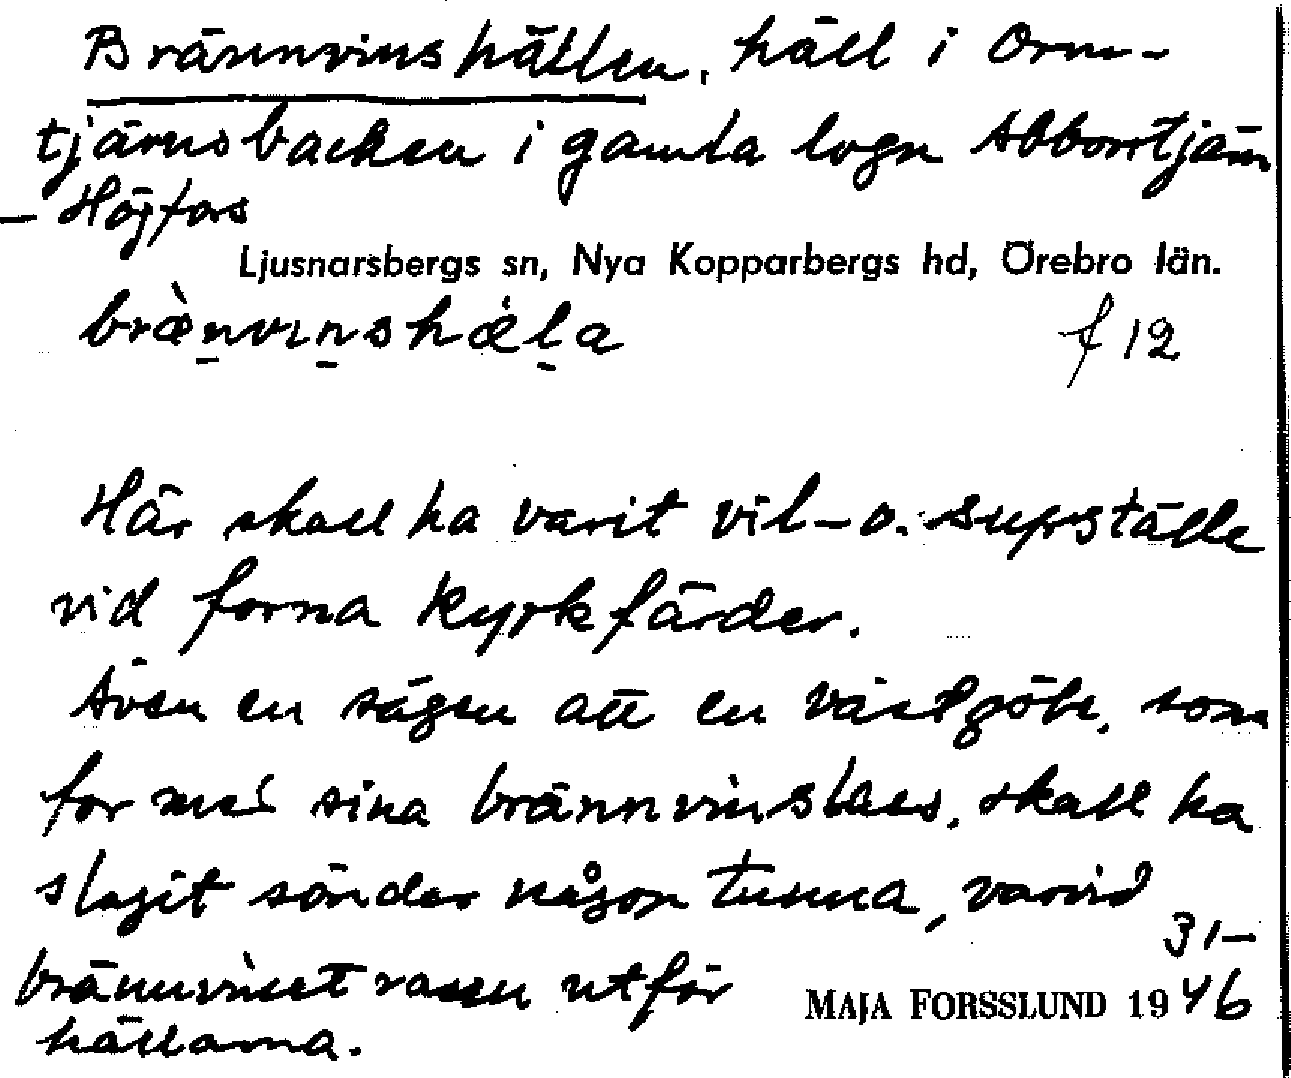 Brännvinshällen, häll i Orm-
tjärnsbacken i gamla logn Abborrtjärn
- Högfors
Ljusnarsbergs sn, Nya Kopparbergs hd, Örebro län.
bræ̀nvinshǽla
f 12
Här skall ha varit vil- o. supställe
vid forna kyrkfärder.
Även en sägen att en västgöte, som
for med sina brännvinslass, skall ha
slagit sönder någon tunna, varvid
31-
brännvinet rann utför
MAJA FORSSLUND 1946
hällarna.